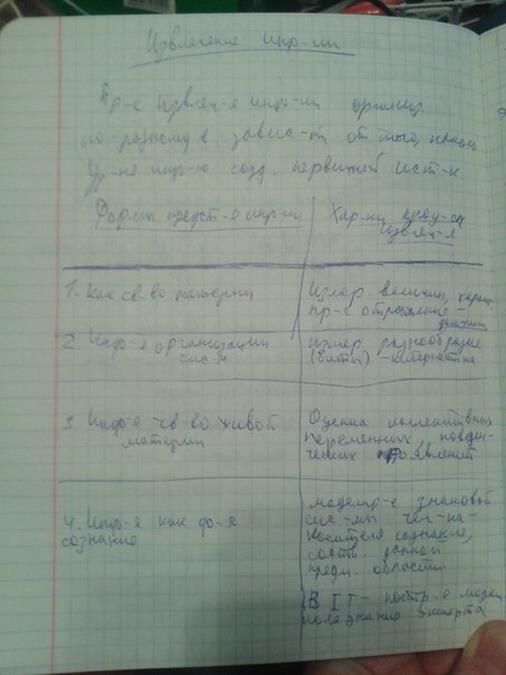 Извлечение инф-ии
Пр-с извлеч-я инф-ии организ.
по-разному в завис-ти от того, какого
ур-ня инф-ю созд. первичный ист-к
Форма предст-я инф-ии
Хар-ки проц-са
извлеч-я
1. Как св-во материи
Измер. величин, харак.
пр-с отражение -
2. Инф-я организации
сис-м
измер. разнообразие
(биты) - кибернетика
3. Инф-я св-во живой
материи
Оценка когнитивных
переменных, поведен-
ческих проявлений
4. Инф-я как ф-я
сознание
моделир-е знаковой
сис-мы чел-ка-
носителя сознание,
соотв. данной
предм. области
В IT - постр-е модел
поле знание эксперта